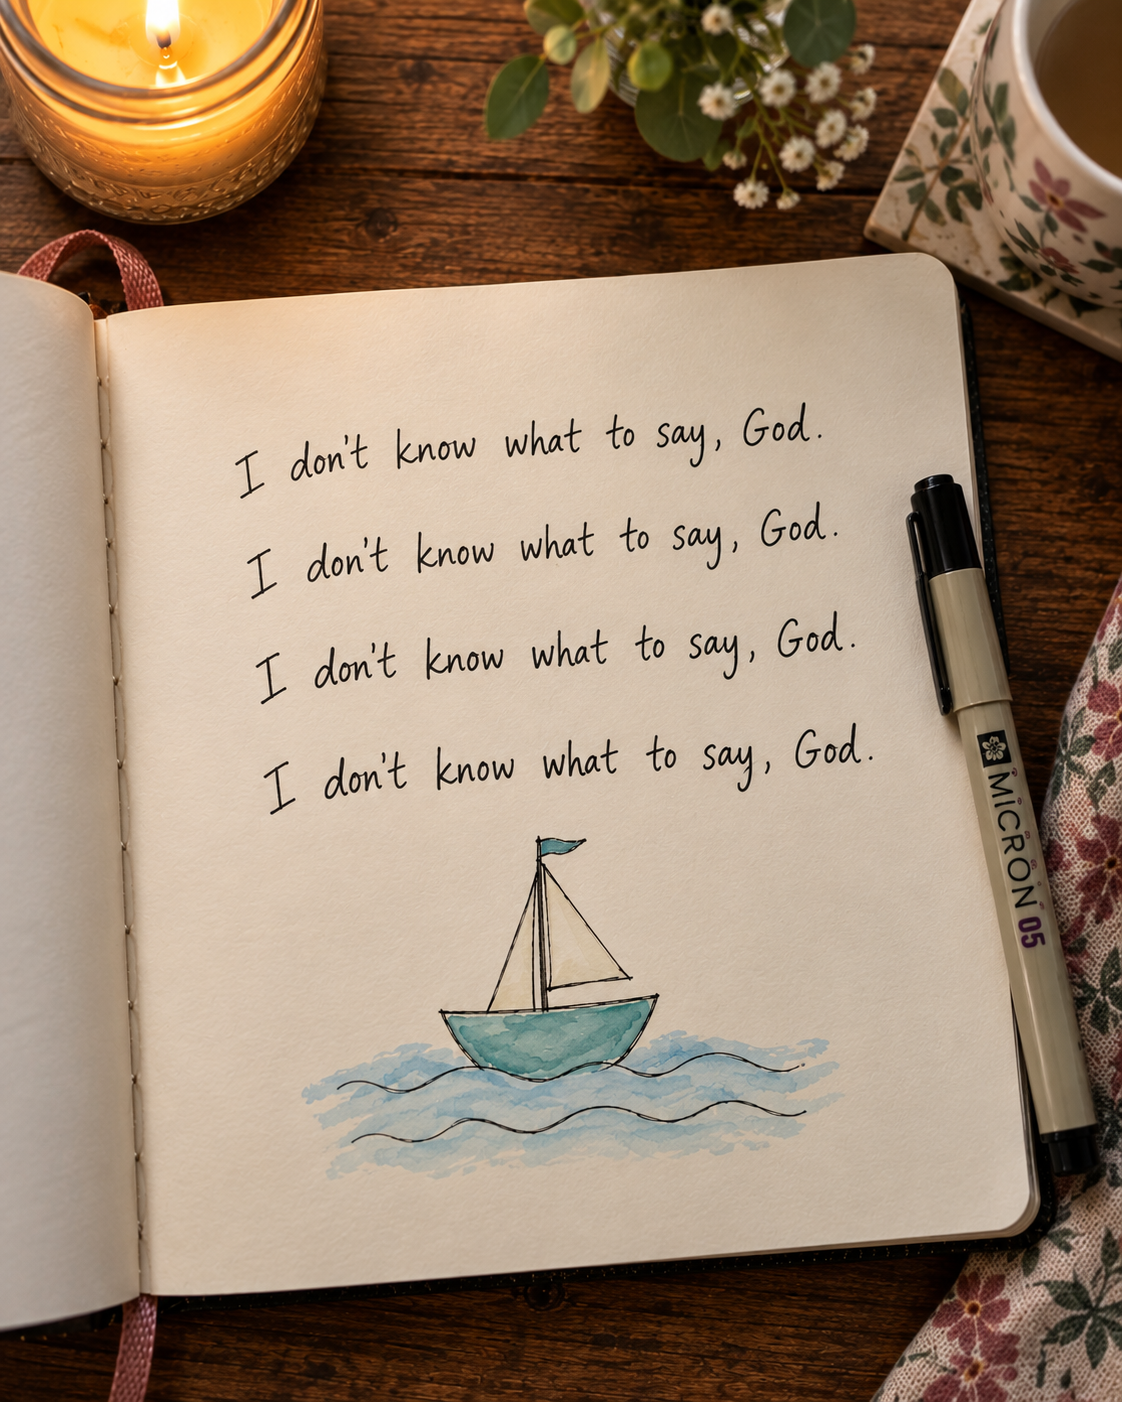 I don't know what to say, God.
I don't know what to say, God.
I don't know what to say, God.
I don't know what to say, God.
MICRON 05